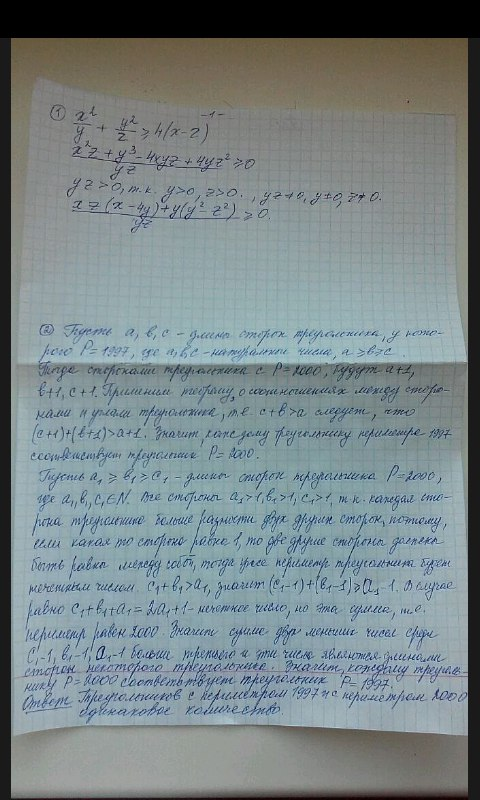 -1-
① x²/y + y²/z ≥ 4(x-z)
(x²z + y³ - 4xyz + 4yz²)/yz ≥ 0
yz > 0, т.к. y > 0, z > 0. , yz ≠ 0, y ≠ 0, z ≠ 0.
(xz(x - 4y) + y(y² - z²))/yz ≥ 0.
② Пусть a, в, с - длины сторон треугольника, у кото-
рого P = 1997, где a, в, с - натуральные числа, a ≥ в ≥ с.
Тогда сторонами треугольника с P = 2000, будут a+1,
в+1, с+1. Применим теорему, о соотношениях между сторо-
нами и углами треугольника, т.е. с+в > a следует, что
(с+1)+(в+1) > a+1. Значит, каждому треугольнику периметра 1997
соответствует треугольник P = 2000.
Пусть a₁ ≥ в₁ ≥ с₁ - длины сторон треугольника P = 2000,
где a₁, в₁, с₁ ∈ N. Все стороны a₁ > 1, в₁ > 1, с₁ > 1, т.к. каждая сто-
рона треугольника больше разности двух других сторон, поэтому,
если какая то сторона равна 1, то две другие стороны должны
быть равны между собой, тогда уже периметр треугольника будет
нечетным числом. с₁ + в₁ > a₁, значит (с₁-1)+(в₁-1) ≥ a₁-1. В случае
равно с₁ + в₁ + a₁ = 2a₁ + 1 - нечетное число, но эта сумма, т.е.
периметр равен 2000. Значит сумма двух меньших чисел среди
с₁-1, в₁-1, a₁-1 больше третьего и эти числа являются длинами
сторон некоторого треугольника. Значит, каждому треуголь-
нику P = 2000 соответствует треугольник P = 1997.
Ответ: Треугольников с периметром 1997 и с периметром 2000
одинаковое количество.